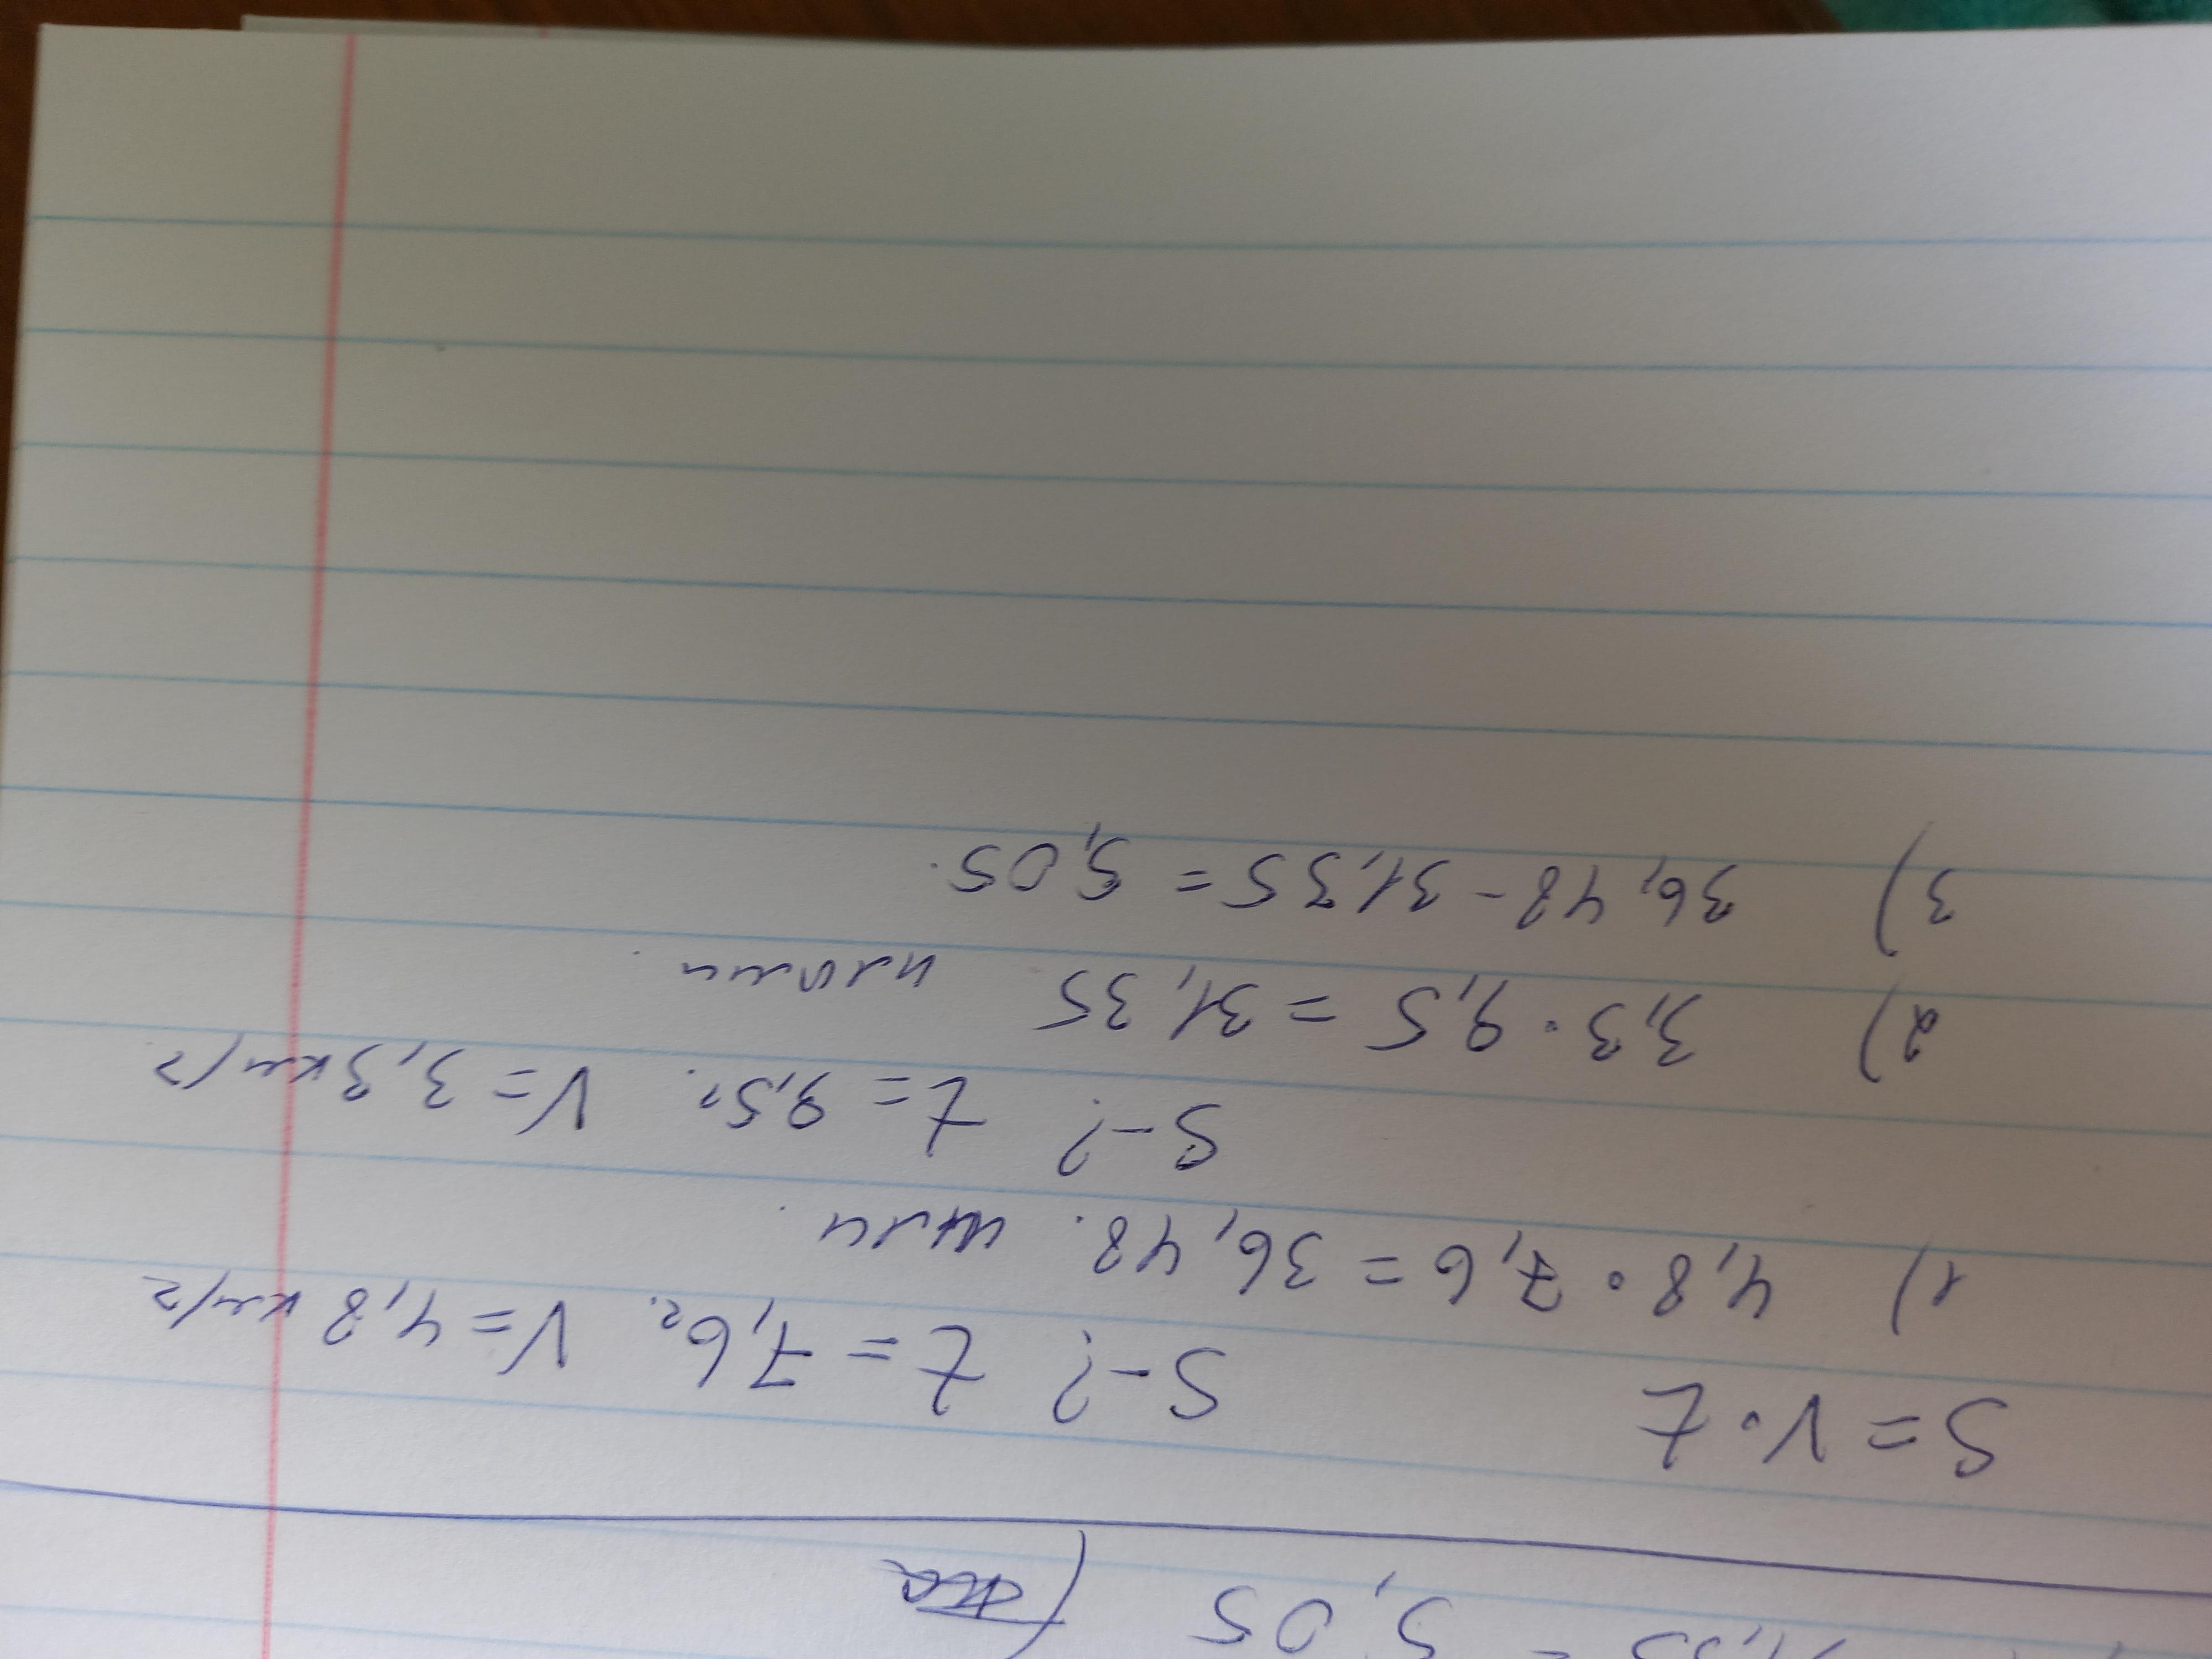 = 5,05
S = V · t
S - ? t = 7,6 г. V = 4,8 км/г
1) 4,8 · 7,6 = 36,48. шли.
S - ? t = 9,5 г. V = 3,3 км/г
2) 3,3 · 9,5 = 31,35
3) 36,48 - 31,35 = 5,05.